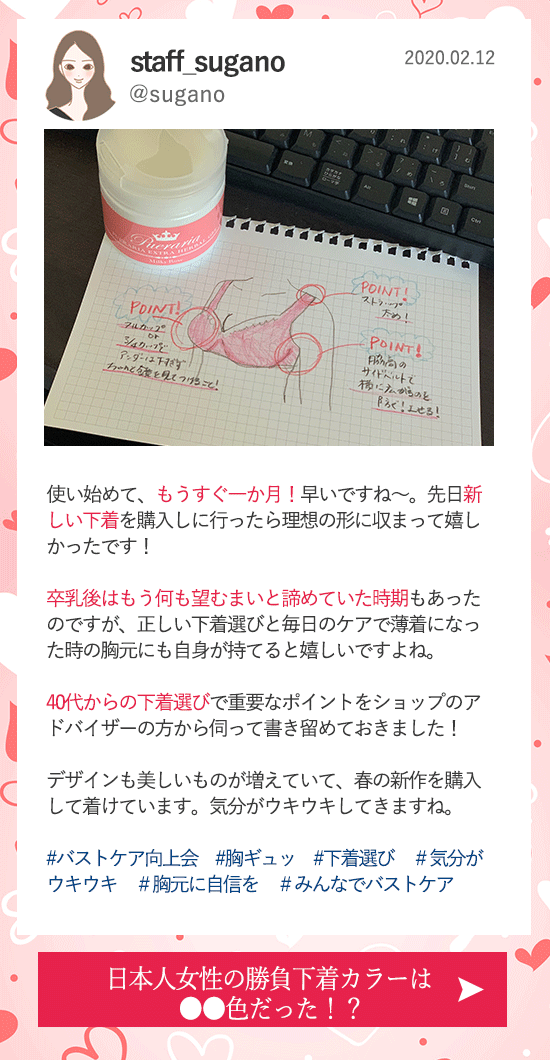 staff_sugano
2020.02.12
@sugano
Pueraria
POINT!
フルカップ
or
POINT!
ストラップ
太め!
POINT!
脇高の
サイドベルトで
使い始めて、もうすぐ一か月！早いですね〜。先日新
しい下着を購入しに行ったら理想の形に収まって嬉し
かったです！
卒乳後はもう何も望むまいと諦めていた時期もあった
のですが、正しい下着選びと毎日のケアで薄着になっ
た時の胸元にも自身が持てると嬉しいですよね。
40代からの下着選びで重要なポイントをショップのア
ドバイザーの方から伺って書き留めておきました！
デザインも美しいものが増えていて、春の新作を購入
して着けています。気分がウキウキしてきますね。
#バストケア向上会 #胸ギュッ #下着選び ＃気分が
ウキウキ ＃胸元に自信を ＃みんなでバストケア
日本人女性の勝負下着カラーは
●●色だった！？